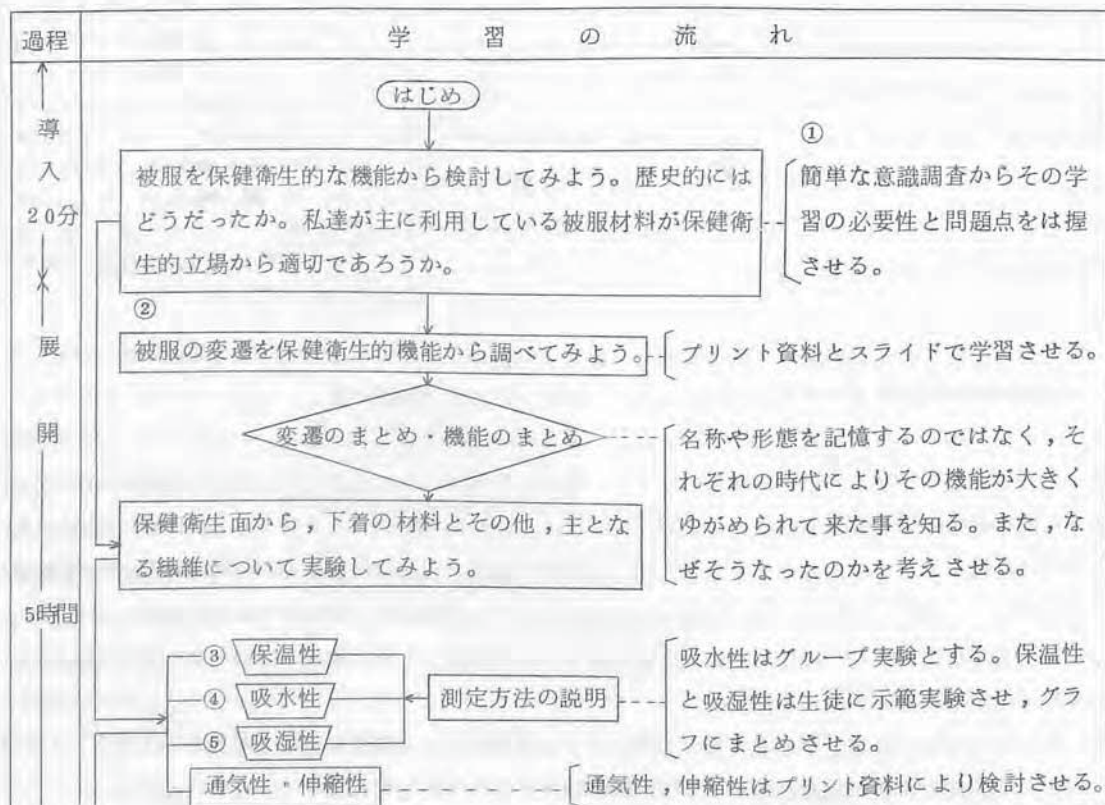 過程
学習の流れ
導入
20分
展開
5時間
はじめ
①
被服を保健衛生的な機能から検討してみよう。歴史的には
どうだったか。私達が主に利用している被服材料が保健衛
生的立場から適切であろうか。
簡単な意識調査からその学
習の必要性と問題点をは握
させる。
②
被服の変遷を保健衛生的機能から調べてみよう。
プリント資料とスライドで学習させる。
変遷のまとめ・機能のまとめ
名称や形態を記憶するのではなく,そ
れぞれの時代によりその機能が大きく
ゆがめられて来た事を知る。また,な
ぜそうなったのかを考えさせる。
保健衛生面から,下着の材料とその他,主とな
る繊維について実験してみよう。
③ 保温性
④ 吸水性
⑤ 吸湿性
測定方法の説明
吸水性はグループ実験とする。保温性
と吸湿性は生徒に示範実験させ,グラ
フにまとめさせる。
通気性・伸縮性
通気性,伸縮性はプリント資料により検討させる。